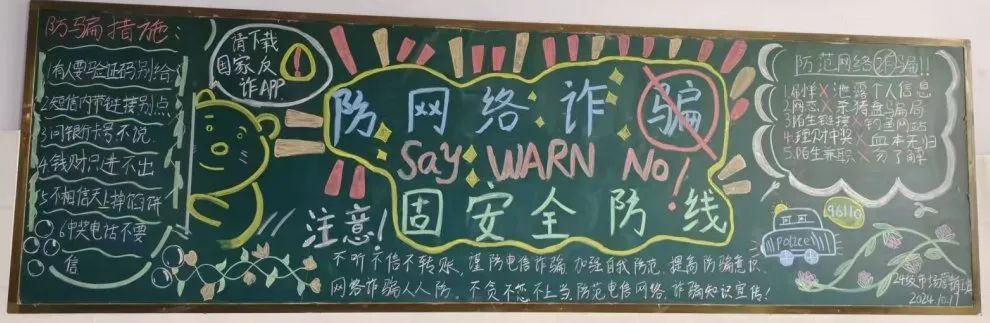 防骗措施:
1.有人要验证码别给
2.短信内带链接别点
3.问银行卡号不说
4.钱财只进不出
5.不相信天上掉馅饼
6.中奖电话不要
信
请下载
国家反
诈APP
防网络诈骗
Say WARN No!
固安全防线
注意!
不听不信不转账,谨防电信诈骗,加强自我防范,提高防骗意识,
网络诈骗人人防。不贪不恋不上当,防范电信网络,诈骗知识宣传!
防范网络诈骗!!
1.刷单X泄露个人信息
2.网恋X杀猪盘骗局
3.陌生链接X钓鱼网站
4.理财中奖X血本无归
5.陌生兼职X勿了解
96110
Police
24级市场营销1班
2024.10.17